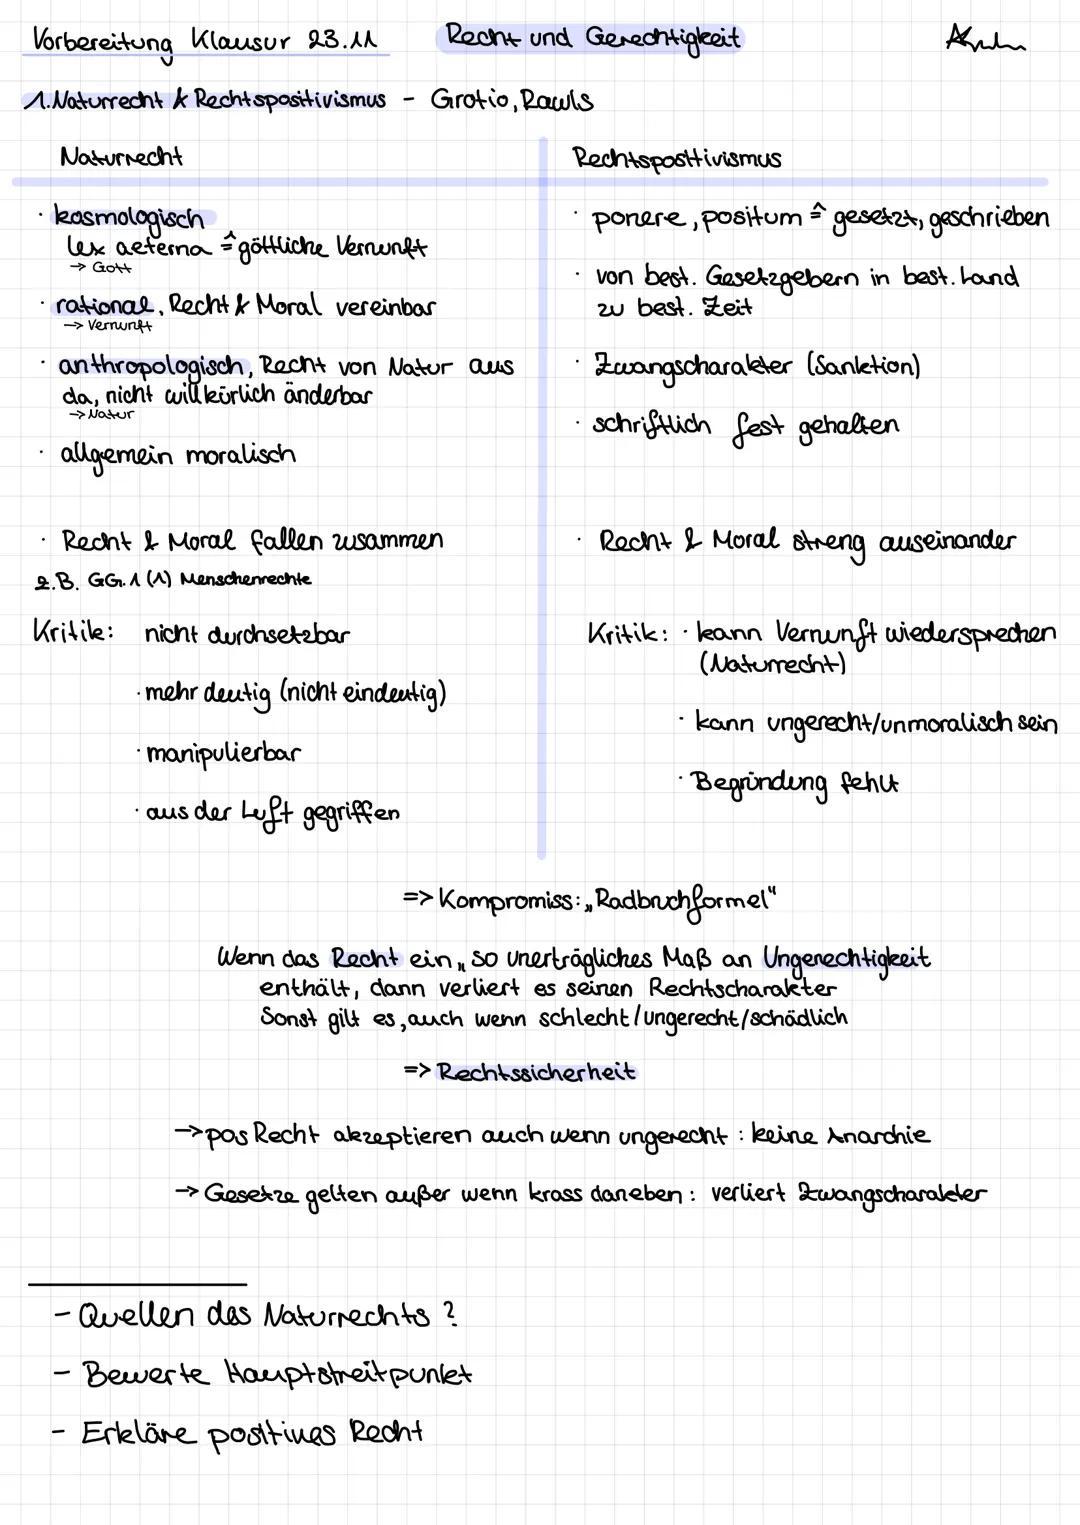 Vorbereitung Klausur 23.11 Recht und Gerechtigkeit
1. Naturrecht & Rechtspositivismus - Grotio, Rawls
Naturrecht
· kosmologisch
lex aeterna ≙ göttliche Vernunft
→ Gott
· rational, Recht & Moral vereinbar
→ Vernunft
· anthropologisch, Recht von Natur aus
da, nicht willkürlich änderbar
→ Natur
· allgemein moralisch
· Recht & Moral fallen zusammen
z.B. GG. 1 (1) Menschenrechte
Kritik: nicht durchsetzbar
· mehr deutig (nicht eindeutig)
· manipulierbar
· aus der Luft gegriffen
Rechtspositivismus
· ponere, positum ≙ gesetzt, geschrieben
· von best. Gesetzgebern in best. Land
zu best. Zeit
· Zwangscharakter (Sanktion)
· schriftlich fest gehalten
· Recht & Moral streng auseinander
Kritik: · kann Vernunft wiedersprechen
(Naturrecht)
· kann ungerecht/unmoralisch sein
· Begründung fehlt
=> Kompromiss: „Radbruchformel"
Wenn das Recht ein „so unerträgliches Maß an Ungerechtigkeit
enthält, dann verliert es seinen Rechtscharakter
Sonst gilt es, auch wenn schlecht/ungerecht/schädlich
=> Rechtssicherheit
→ pos Recht akzeptieren auch wenn ungerecht : keine Anarchie
→ Gesetze gelten außer wenn krass daneben : verliert Zwangscharakter
- Quellen des Naturrechts ?
- Bewerte Hauptstreitpunkt
- Erkläre positives Recht